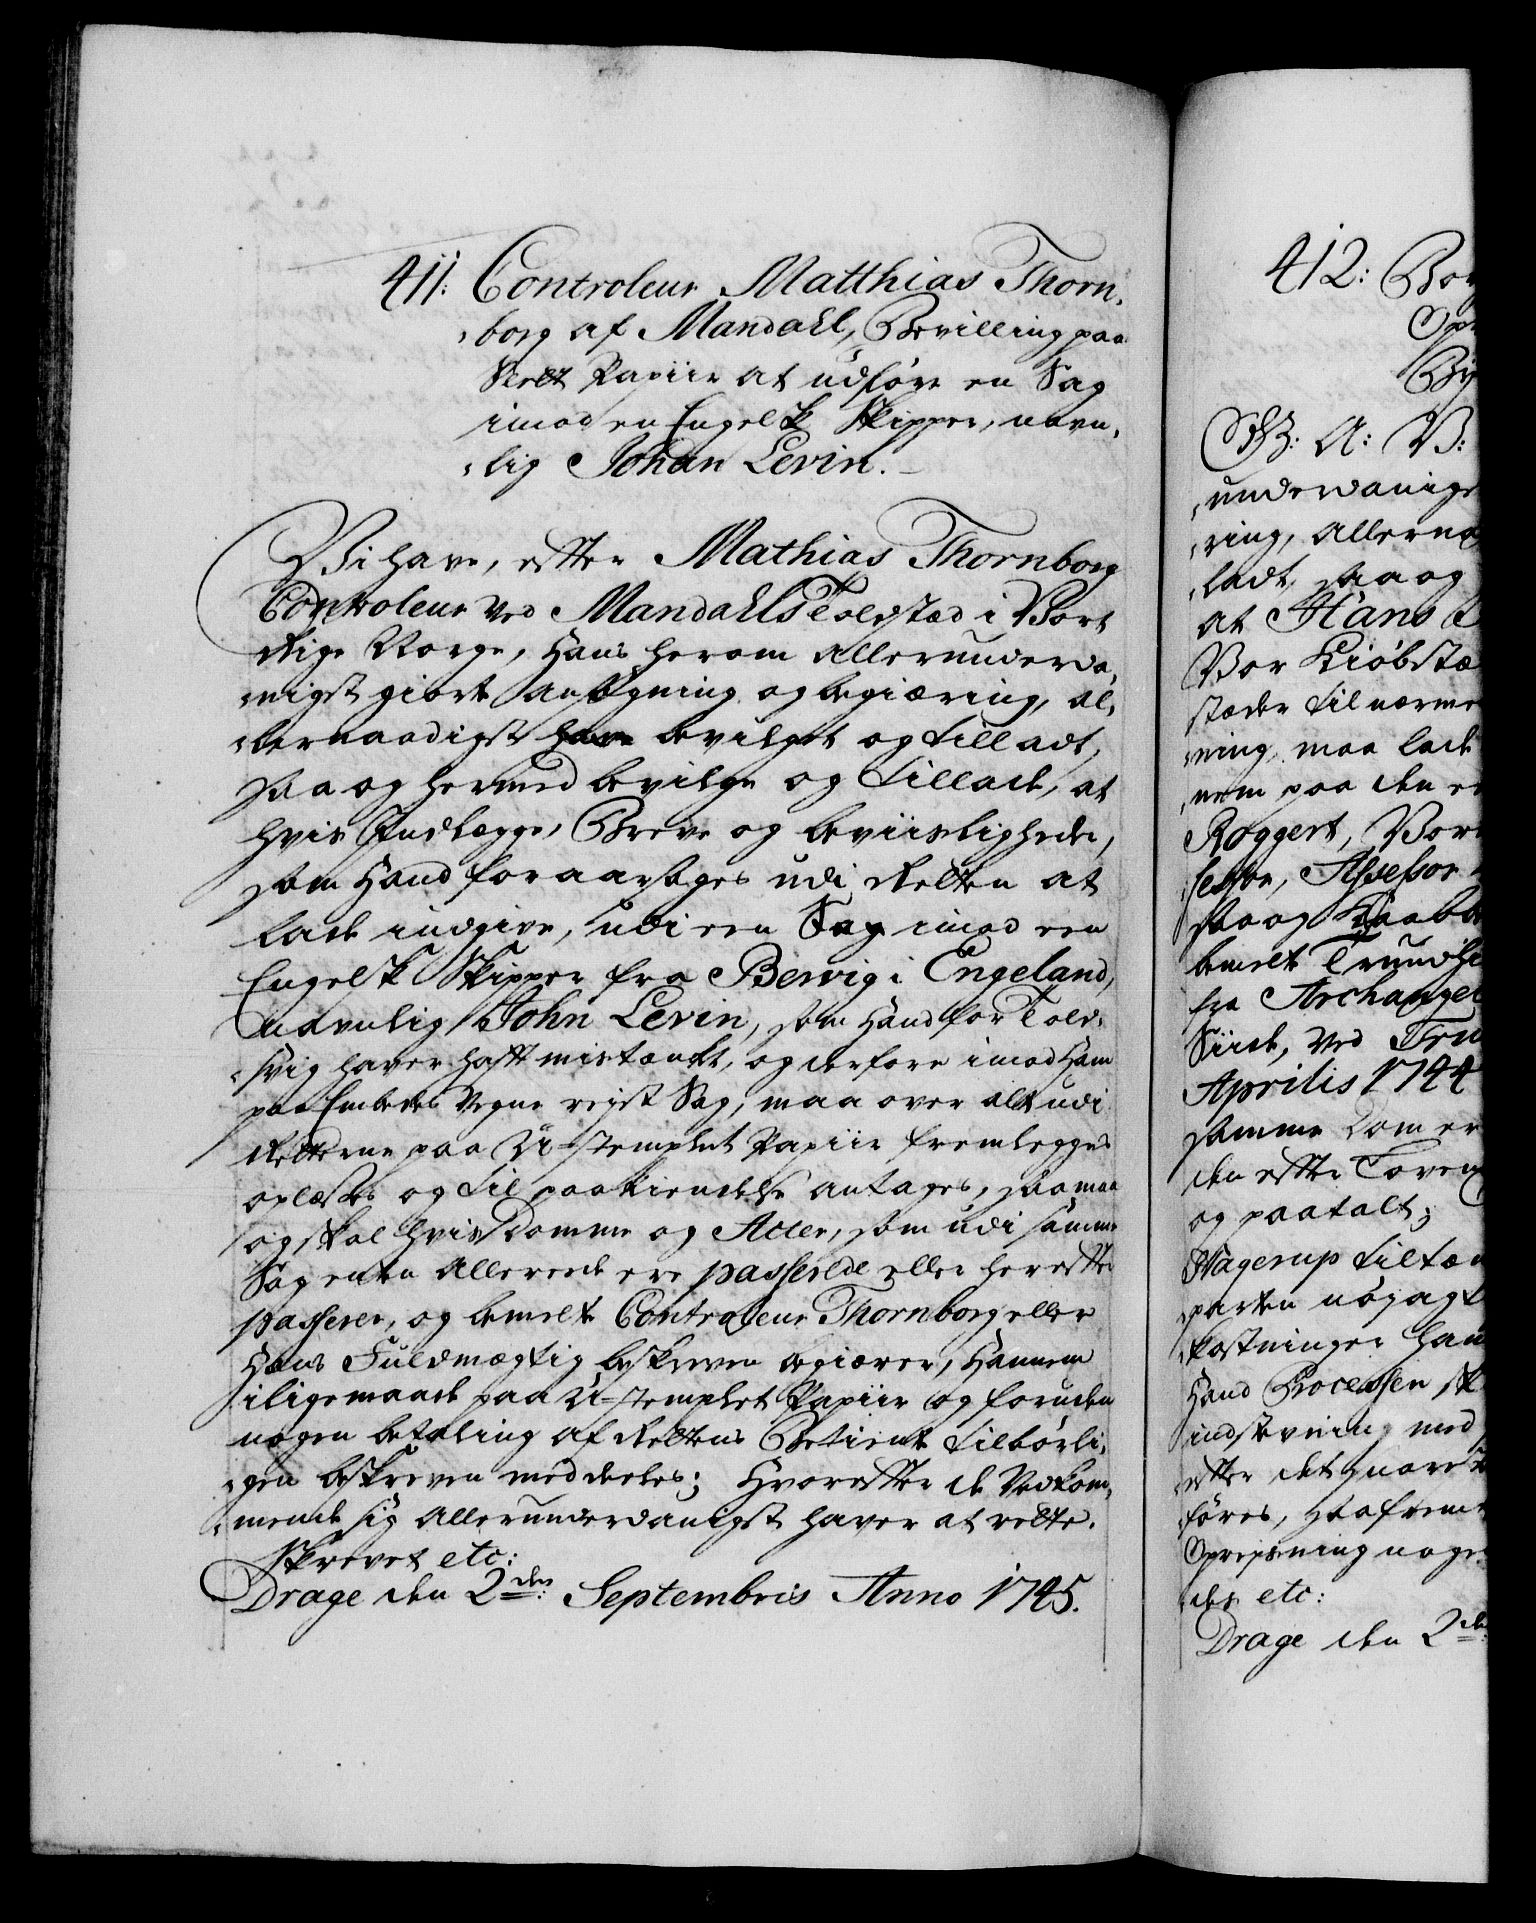 411: Controleur Matthias Thorn-
borg af Mandahl, Bevilling paa
slet Papiir at udføre en Sag
imod en Engelsk Skipper, navn-
lig Johan Levin.
Vi have, efter Mathias Thornborg
Controleur ved Mandahls Toldstæd i Vort
Rige Norge, Hans herom allerunderda-
nigst giorte Ansøgning og begiæring, al-
lernaadigst have bevilget og tilladt,
saa og hermed bevilge og tillade, at
hvis Indlægge, Breve og beviisligheder,
som Hand foraarsages udi Retten at
lade indgive, udi een Sag imod een
Engelsk Skipper fra Bervig i Engeland,
navnlig John Levin, som Hand for Told-
svig haver hafft mistænkt, og derfore imod Ham
paa Embeds Vegne rejst Sag, maa over alt udi
Retterne paa U-stemplet Papiir fremlegges
oplæses og til paakiendelse antages, saa maa
og skal hvis Domme og Acter, som udi samme
Sag enten allerede ere passerede eller herefter
passerer, og bemelte Controleur Thornborg eller
Hans Fuldmægtig beskreven begiærer, Hannem
iligemaade paa U-stemplet Papiir og foruden
nogen betaling af Rettens Betiente tilbørli-
gen beskreven meddeeles; Hvorefter de Vedkom-
mende sig allerunderdanigst haver at rette.
Skrevet etc:
Drage den 2den: Septembris Anno 1745.
412:
A: V:
underdanigs
ring, allerna
ladt, saa og
at Hans
Vor Kiøbstæ
stæder til nærme
ning, maa lade
nem paa den
Roggert, Vor
Assessor
saa og
bemelte Trundhi
fra Archangel
Siide, ved
Aprilis 1744
samme Dom er
den efter Loven
og paatalt;
Hagerup tiltæn
parten nøjagt
kostninger han
Hand Processen sk
indstevning med
efter det
føres, saafremt
Opreisning noge
des etc:
Drage den 2de